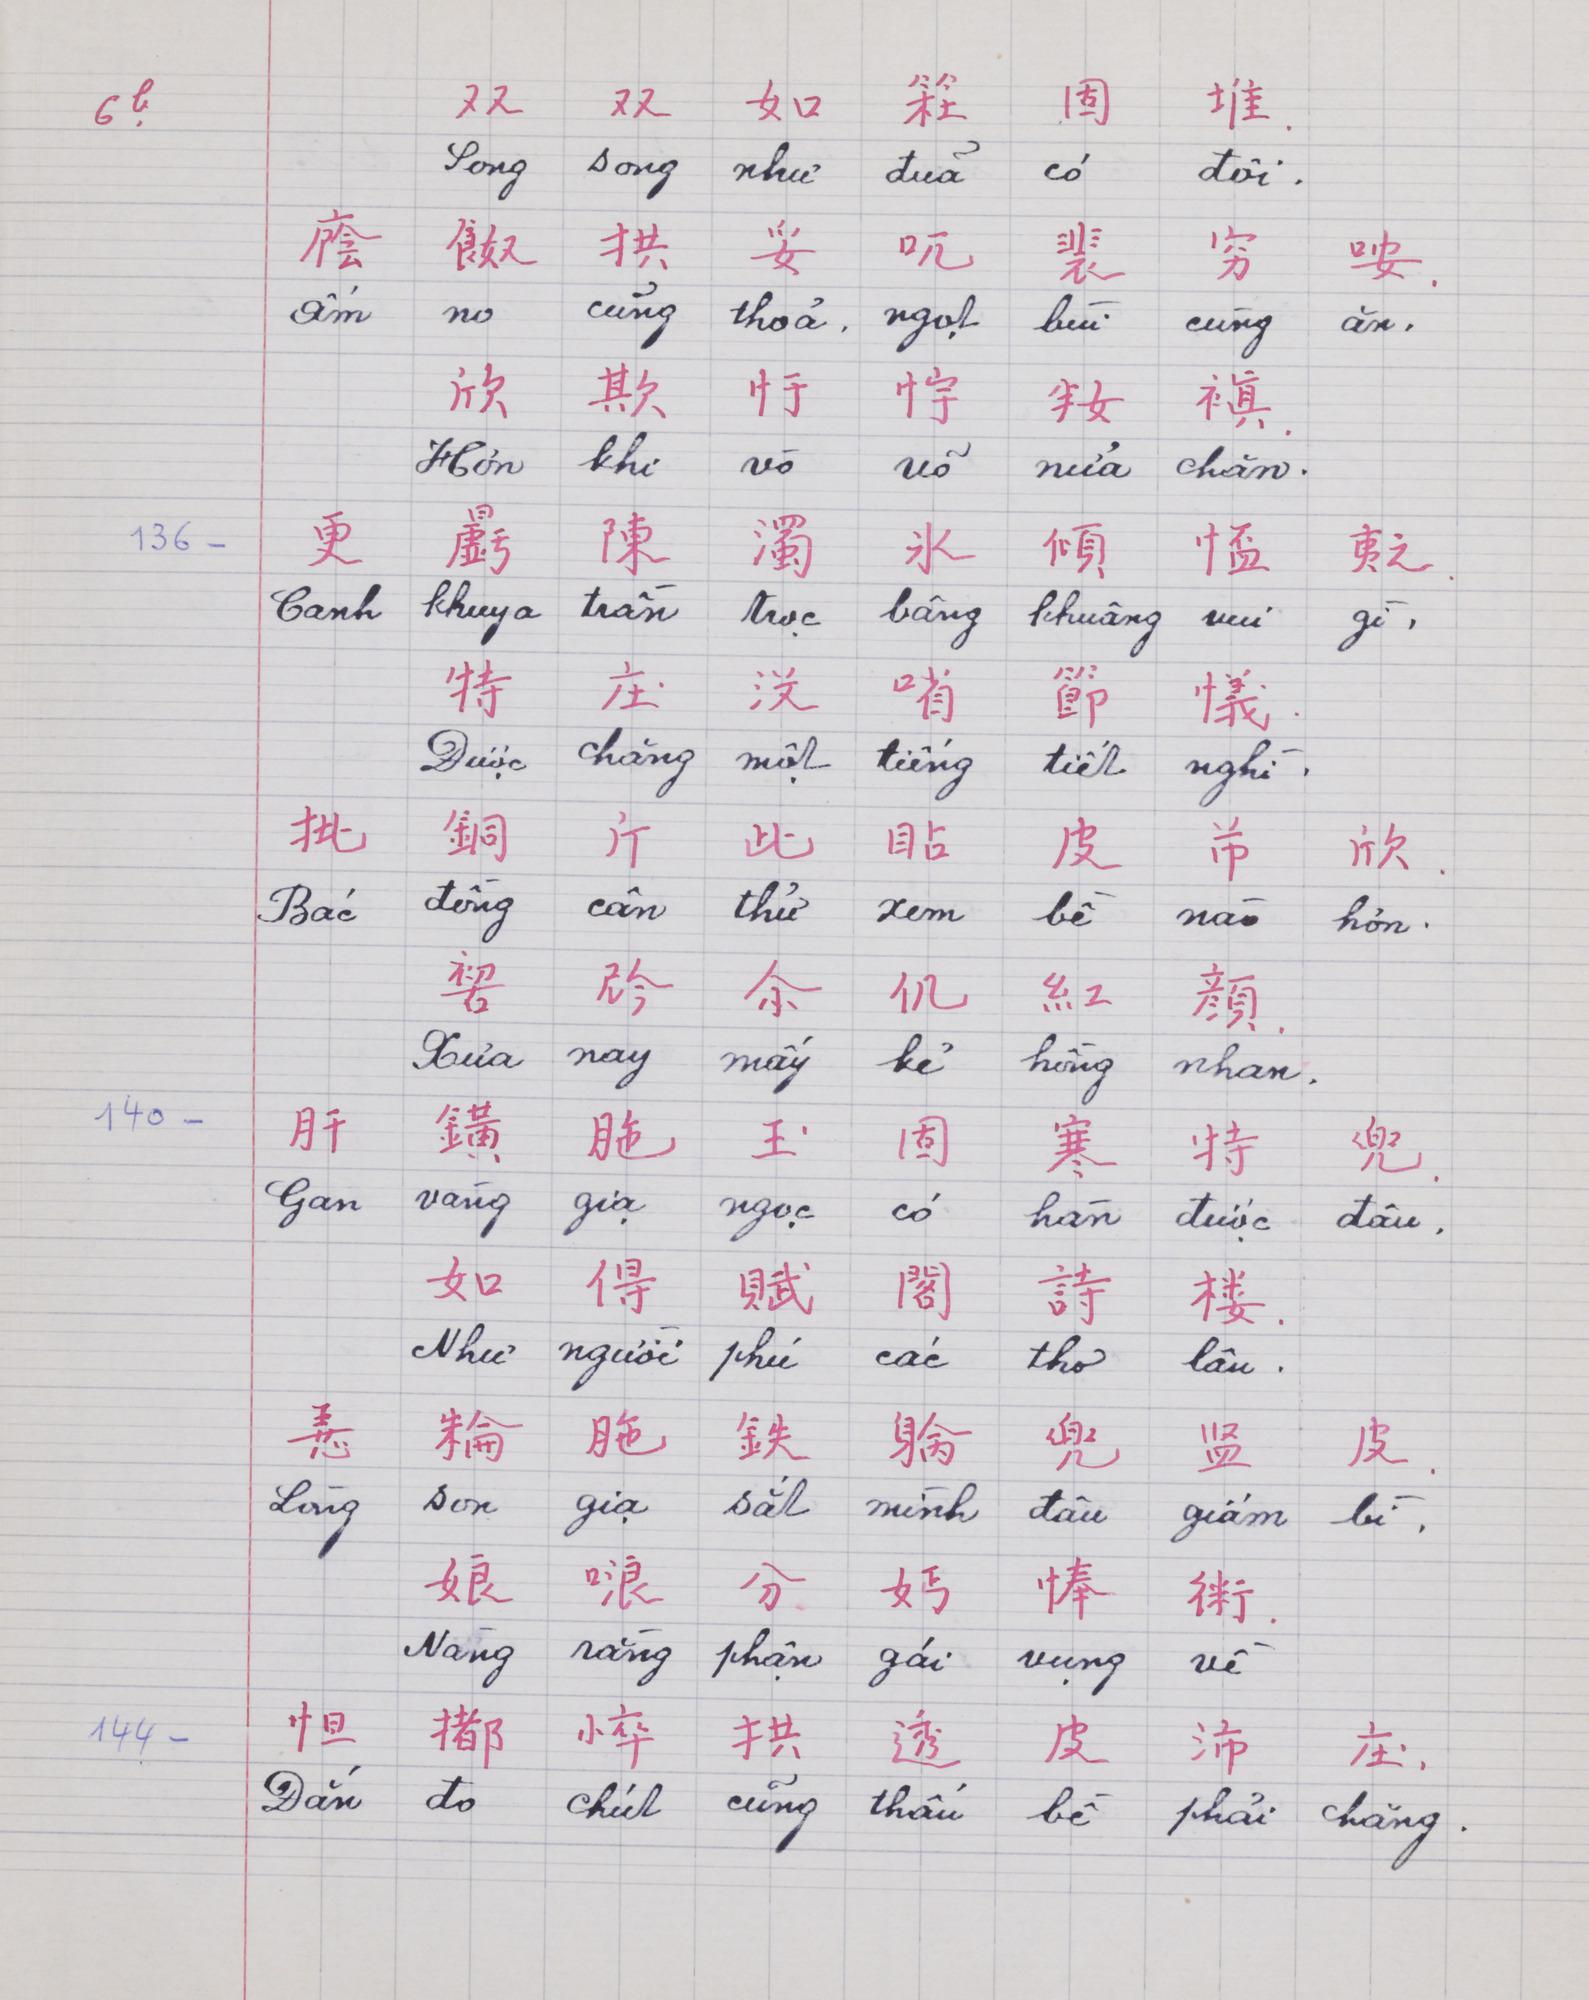 6b.
双 双 如 𥮊 固 堆.
Song song như đuã có đôi.
廕 𩛂 拱 妥 吭 裴 穷 咹.
Ấm no cũng thoả, ngọt bùi cùng ăn.
欣 欺 𢗼 𢙲 姅 禛.
Hơn khi vò võ nửa chăn.
136 - 更 𣌉 陳 濁 氷 傾 㦖 夷之.
Canh khuya trằn trọc bâng khuâng vui gì,
特 庄 没 哨 節 㦣.
Được chăng một tiếng tiết nghì,
批 銅 斤 此 䀡 皮 芇 欣.
Bác đồng cân thử xem bề nào hơn.
𠸗 𠉞 余 仉 紅 顔.
Xưa nay mấy kẻ hồng nhan.
140 - 肝 鐄 胣 玉 固 寒 特 兜.
Gan vàng giạ ngọc có hàn được đâu.
如 得 賦 閣 詩 楼.
Như người phú các thơ lâu.
𢚸 𣘈 胣 鉄 𨉟 兜 监 皮.
Lòng son giạ sắt mình đâu giám bì,
娘 哴 分 妈 㤶 術.
Nàng rằng phận gái vụng về
144 - 怛 擆 悴 拱 透 皮 沛 庄.
Dắn đo chút cũng thấu bề phải chăng.